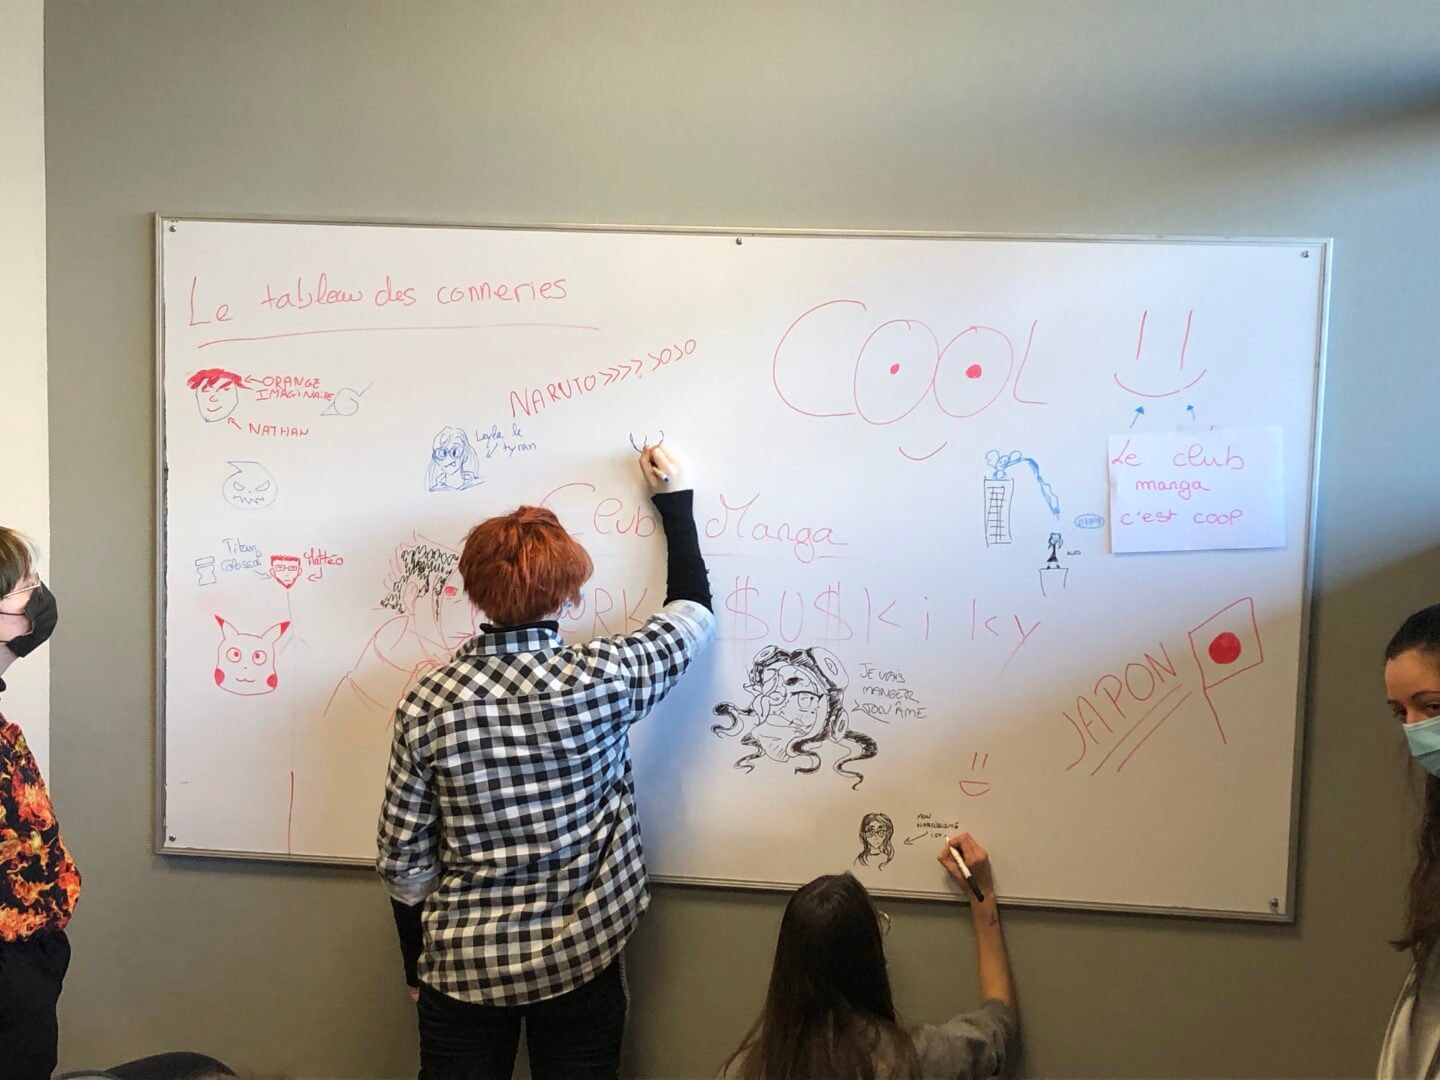 Le tableau des conneries
COOL
ORANGE
IMAGINAIRE
NATHAN
NARUTO >>>>> JOJO
Leyla le
tyran
Le club
manga
c'est coop
Club Manga
Titan
Colossal
Mattéo
$U$kiky
JE VAIS
MANGER
TON ÂME
JAPON
MON
NARCISSISME
EST